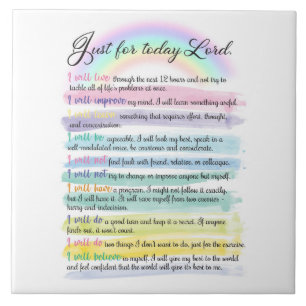 Just for today Lord.
I will live through the next 12 hours and not try to
tackle all of life's problems at once.
I will improve my mind. I will learn something useful.
I will learn something that requires effort, thought,
and concentration.
I will be agreeable. I will look my best, speak in a
well-modulated voice, be courteous and considerate.
I will not find fault with friend, relative, or colleague.
I will not try to change or improve anyone but myself.
I will have a program. I might not follow it exactly,
but I will have it. I will save myself from two enemies -
hurry and indecision.
I will do a good turn and keep it a secret. If anyone
finds out, it won't count.
I will do two things I don't want to do, just for the exercise.
I will believe in myself. I will give my best to the world
and feel confident that the world will give its best to me.